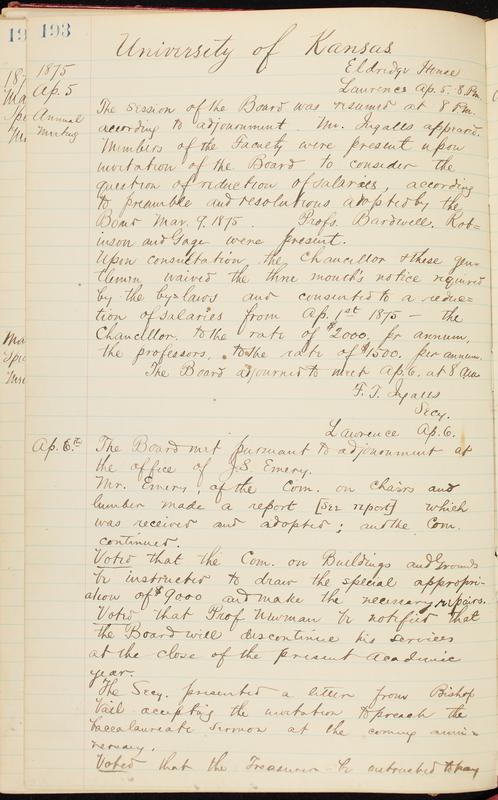 19 193
University of Kansas
1875
Ap. 5
Annual
Meeting
Eldridge House
Lawrence Ap. 5. 8 P.M.
The session of the Board was resumed at 8 P.M.
according to adjournment. Mr. Ingalls appeared.
Members of the Faculty were present upon
invitation of the Board to consider the
question of reduction of salaries, according
to preamble and resolutions adopted by the
Board Mar. 9. 1875. Profs. Bardwell, Rob=
inson and Gage were present.
Upon consultation the Chancellor & these gen=
tlemen waived the three month's notice required
by the by-laws and consented to a reduc=
tion of salaries from Ap. 1st 1875 — the
Chancellor. to the rate of $2000. per annum.
the professors. to the rate of $1500. per annum.
The Board adjourned to meet Ap. 6. at 8 am
F. T. Ingalls
Secy.
Lawrence Ap. 6.
Ap. 6.th
The Board met pursuant to adjournment at
the office of J.S. Emery.
Mr. Emery, of the Com. on chairs and
lumber made a report [See report] which
was received and adopted; and the Com.
continued.
Voted that the Com. on Buildings and Grounds
be instructed to draw the special appropri-
ation of $9000 and make the necessary repairs.
Voted that Prof Newman be notified that
the Board will discontinue his services
at the close of the present academic
year.
The Secy. presented a letter from Bishop
Vail accepting the invitation to preach the
baccalaureate sermon at the coming anni=
versary.
Voted that the Treasurer be instructed to pay